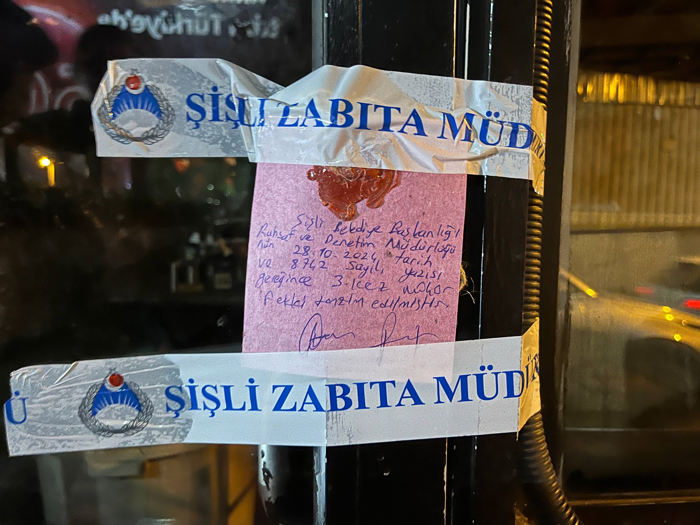 Türkiye'de
ŞİŞLİ ZABITA MÜDÜR
Şişli Belediye Başkanlığı
Ruhsat ve Denetim Müdürlüğü
nün 28.10.2024 tarih
ve 8742 Sayılı yazısı
gereğince 3.kez mühür
Fekki tanzim edilmiştir
Ü ŞİŞLİ ZABITA MÜDÜR